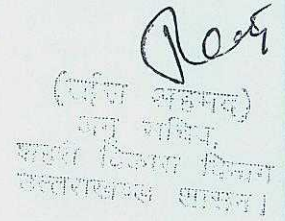 (         अहमद)
अनु सचिव,
शहरी विकास विभाग
उत्तराखण्ड शासन।